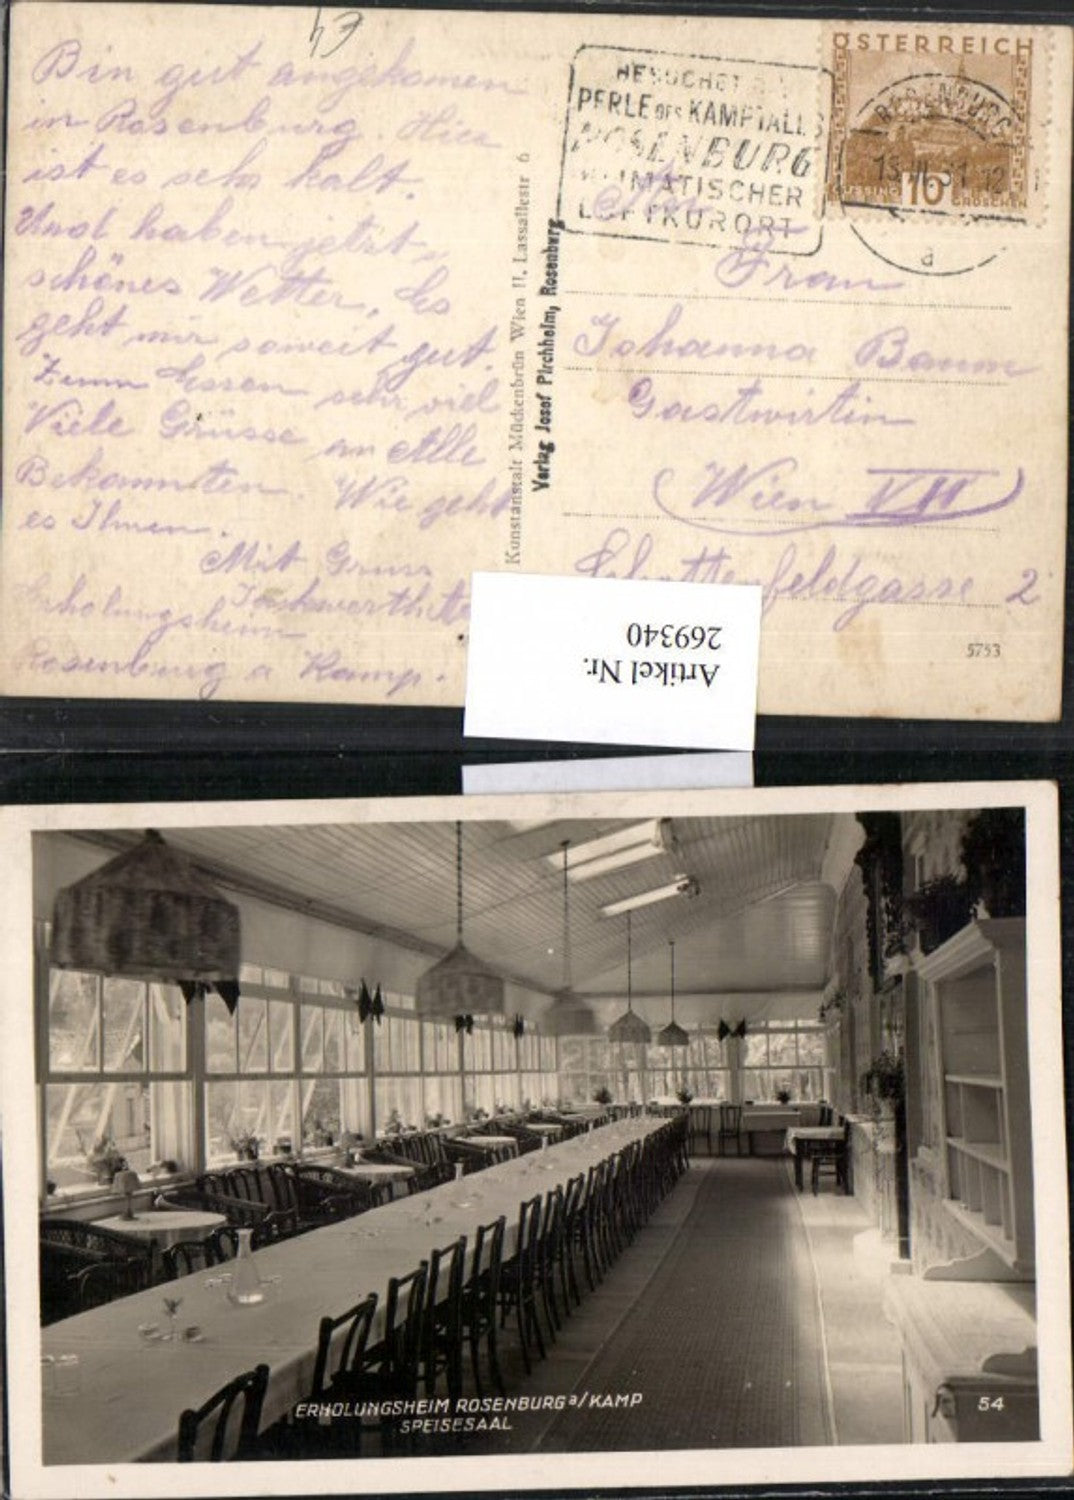 43
Bin gut angekomen
in Rosenburg. Hier
ist es sehr kalt.
Und haben jetzt
schönes Wetter. Es
geht mir soweit gut.
Zum Essen sehr viel
Viele Grüsse an Alle
Bekannten. Wie geht
es Ihnen.
Mit Gruss
Erholungsheim
Rosenburg a Kamp.
Kunstanstalt Mückenbrün Wien II, Lassallestr 6
Verlag Josef Pirchheim, Rosenburg
BESUCHET DIE
PERLE DES KAMPTALES
ROSENBURG
KLIMATISCHER
LUFTKURORT
ÖSTERREICH
GÜSSING
16
GROSCHEN
ROSENBURG
15.VI.31.12
a
An
Frau
Johanna Baum
Gastwirtin
Wien VII
Schottenfeldgasse 2
5753
Artikel Nr.
269340
ERHOLUNGSHEIM ROSENBURG a/KAMP
SPEISESAAL
54